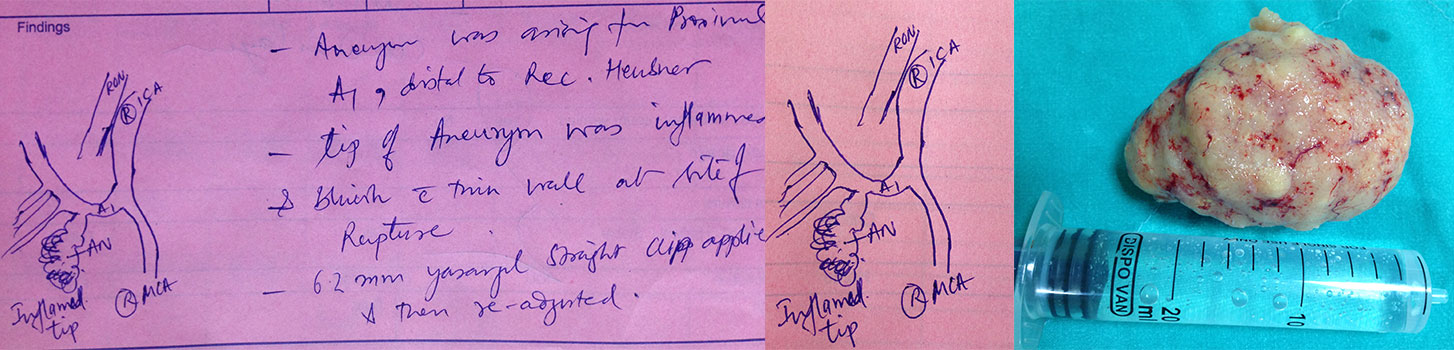 Findings
- Aneurysm was arising fm Proximal
A1, distal to Rec. Heubner
- tip of Aneurysm was inflammed
& Bluish c̄ thin wall at site of
Rupture.
- 6.2 mm yasargil straight clip applie
& then re-adjusted.
RON
R ICA
A1
AN
Inflamed
tip
R MCA
RON
R ICA
A1
AN
Inflamed
tip
R MCA
FOR SINGLE USE ONLY
DISPO VAN
ml 20
10